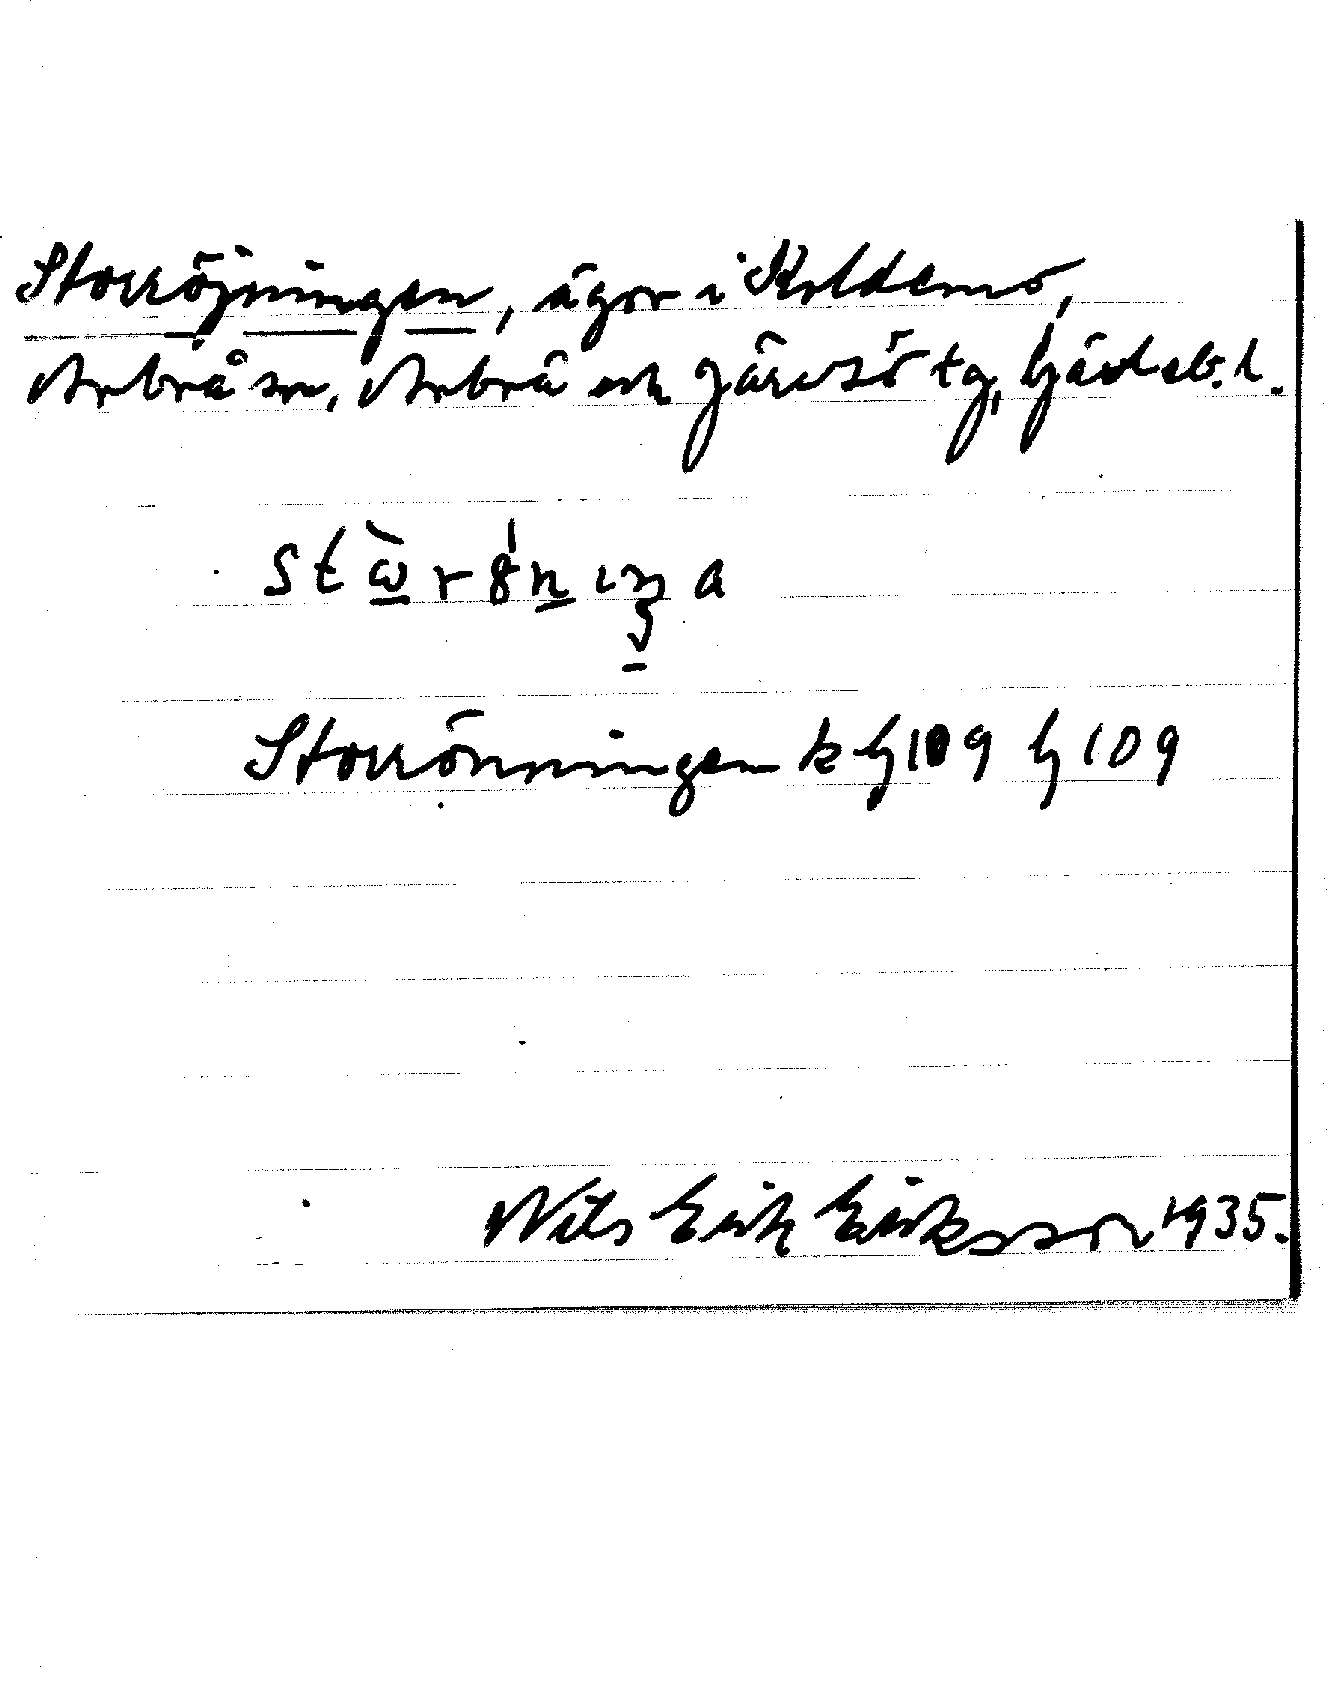 Storröjningen, ägor i Koldemo,
Arbrå sn, Arbrå och Järvsö tg, Gävleb. l.
Storrönningen k G109 G109
Nils Erik Eriksson 1935.